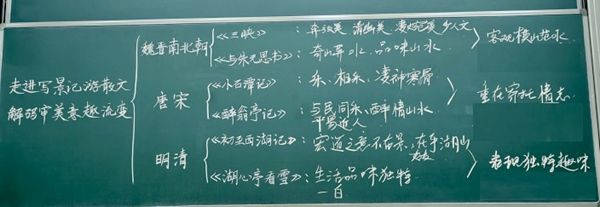 走进写景记游散文
解码审美意趣流变
魏晋南北朝
《三峡》：奔放美 清幽美 凄婉
《与朱元思书》：奇山异水 品味山水
客观模山范水
唐宋
《小石潭记》：乐、相乐、凄神寒骨
《醉翁亭记》：与民同乐、醉情山水
平易近人
重在寄托情志
明清
《初至西湖记》：宏道之意不在景，在乎湖山
《湖心亭看雪》：生活品味独特
一白
表现独特趣味